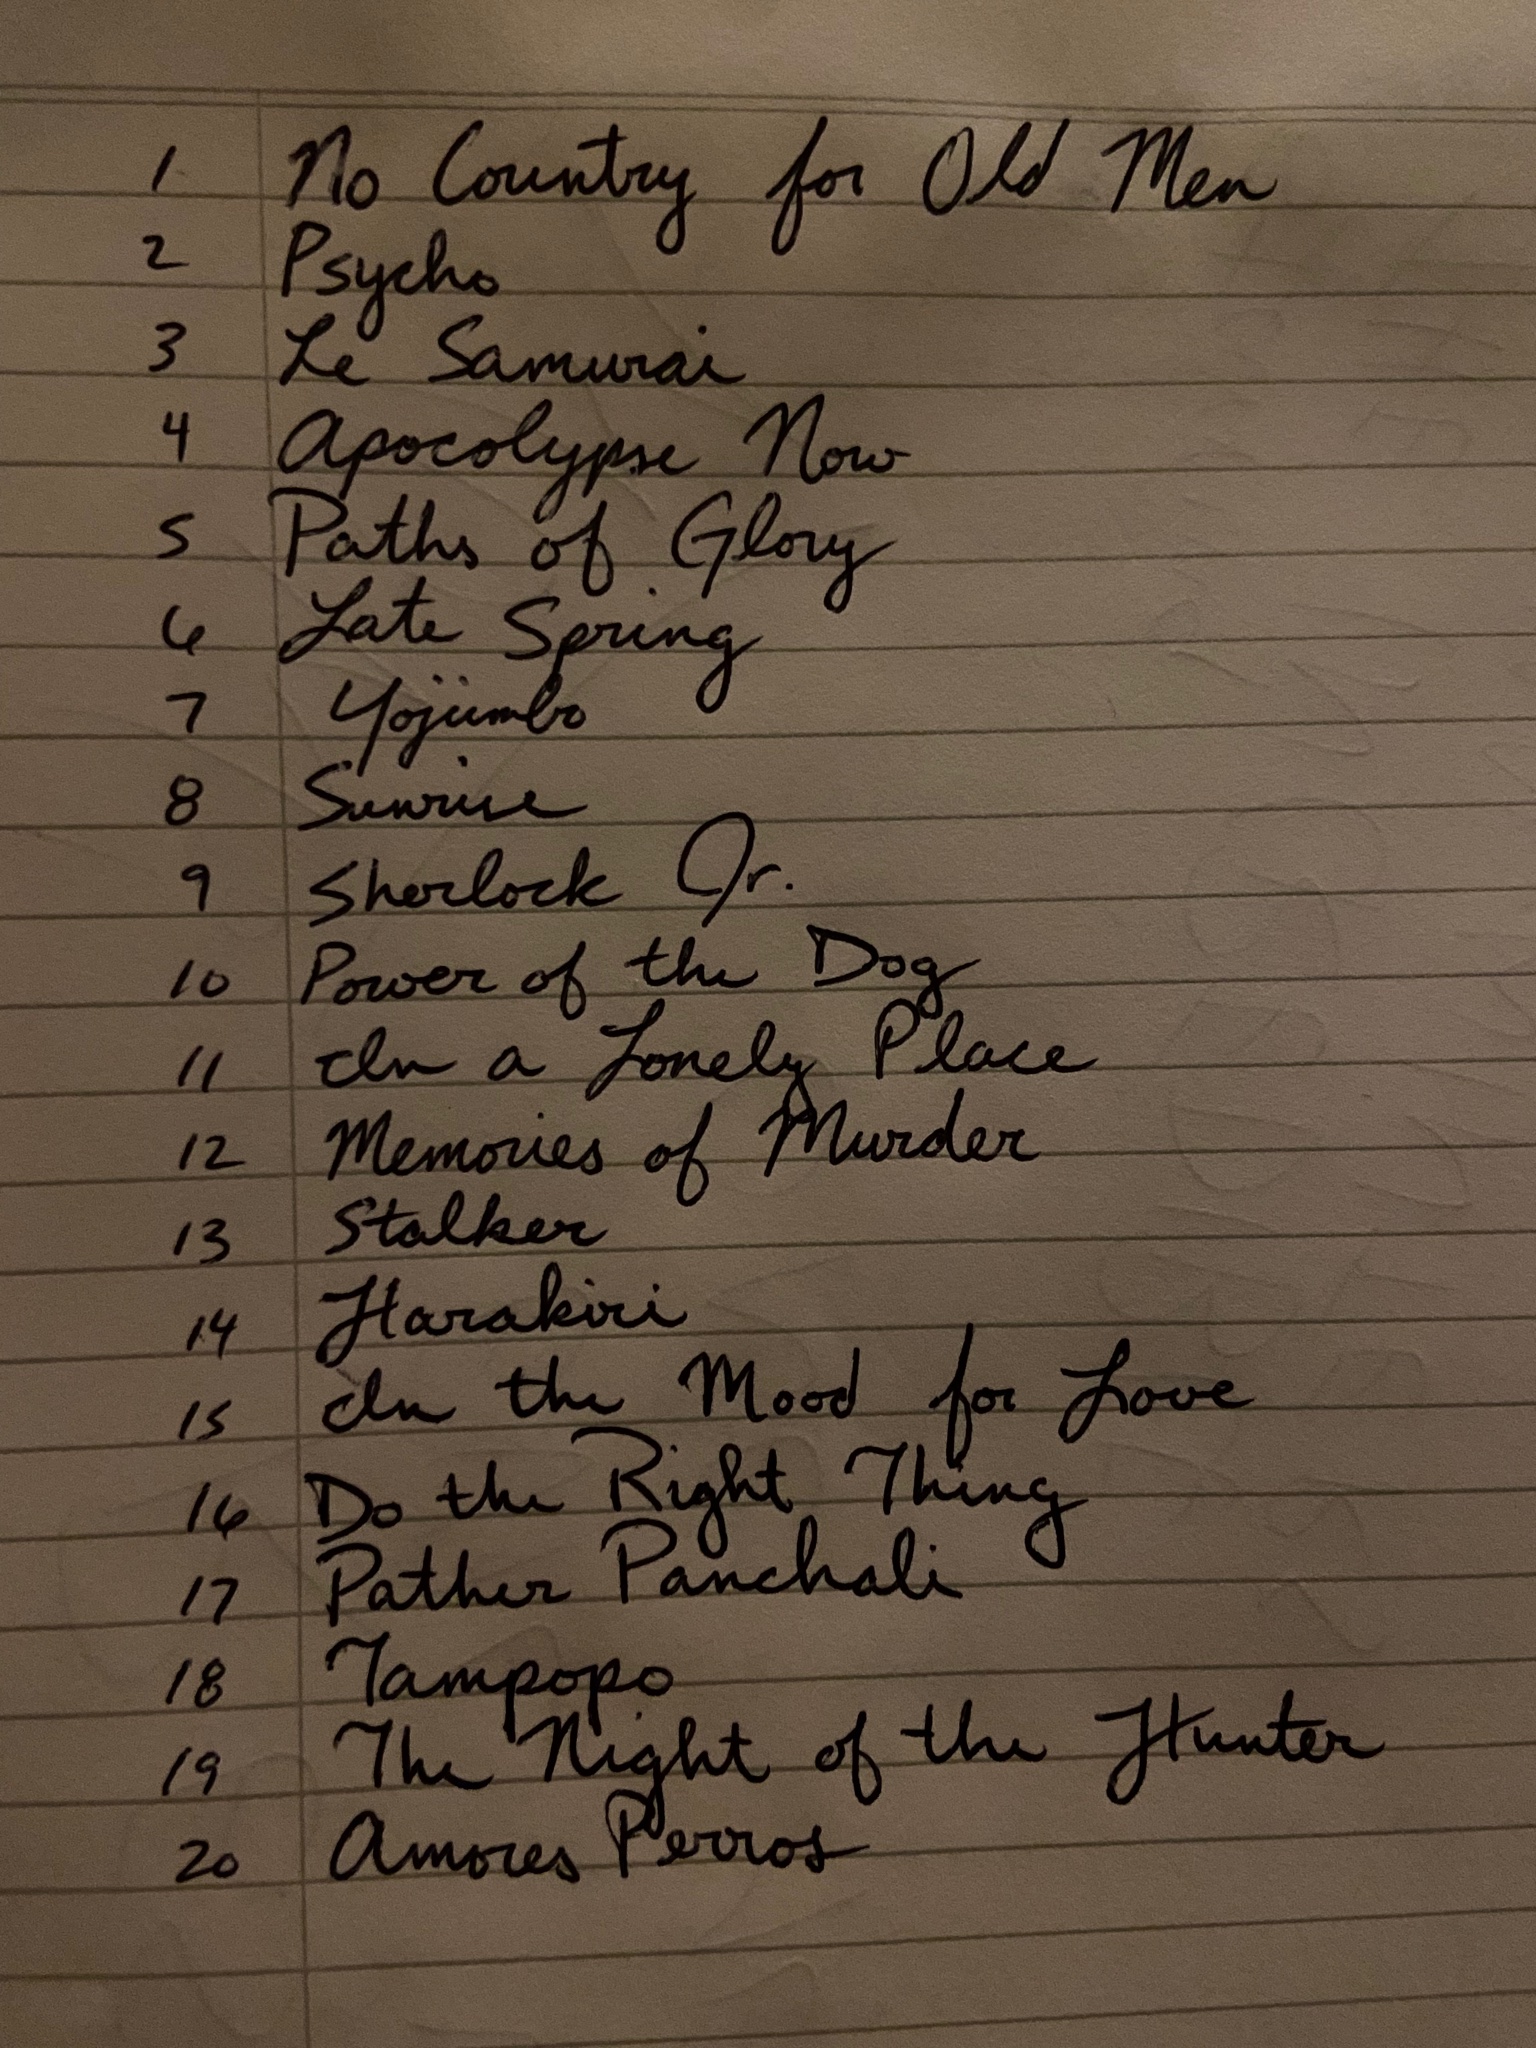 1 No Country for Old Men
2 Psycho
3 Le Samurai
4 Apocolypse Now
5 Paths of Glory
6 Late Spring
7 Yojimbo
8 Sunrise
9 Sherlock Jr.
10 Power of the Dog
11 In a Lonely Place
12 Memories of Murder
13 Stalker
14 Harakiri
15 In the Mood for Love
16 Do the Right Thing
17 Pather Panchali
18 Tampopo
19 The Night of the Hunter
20 Amores Perros